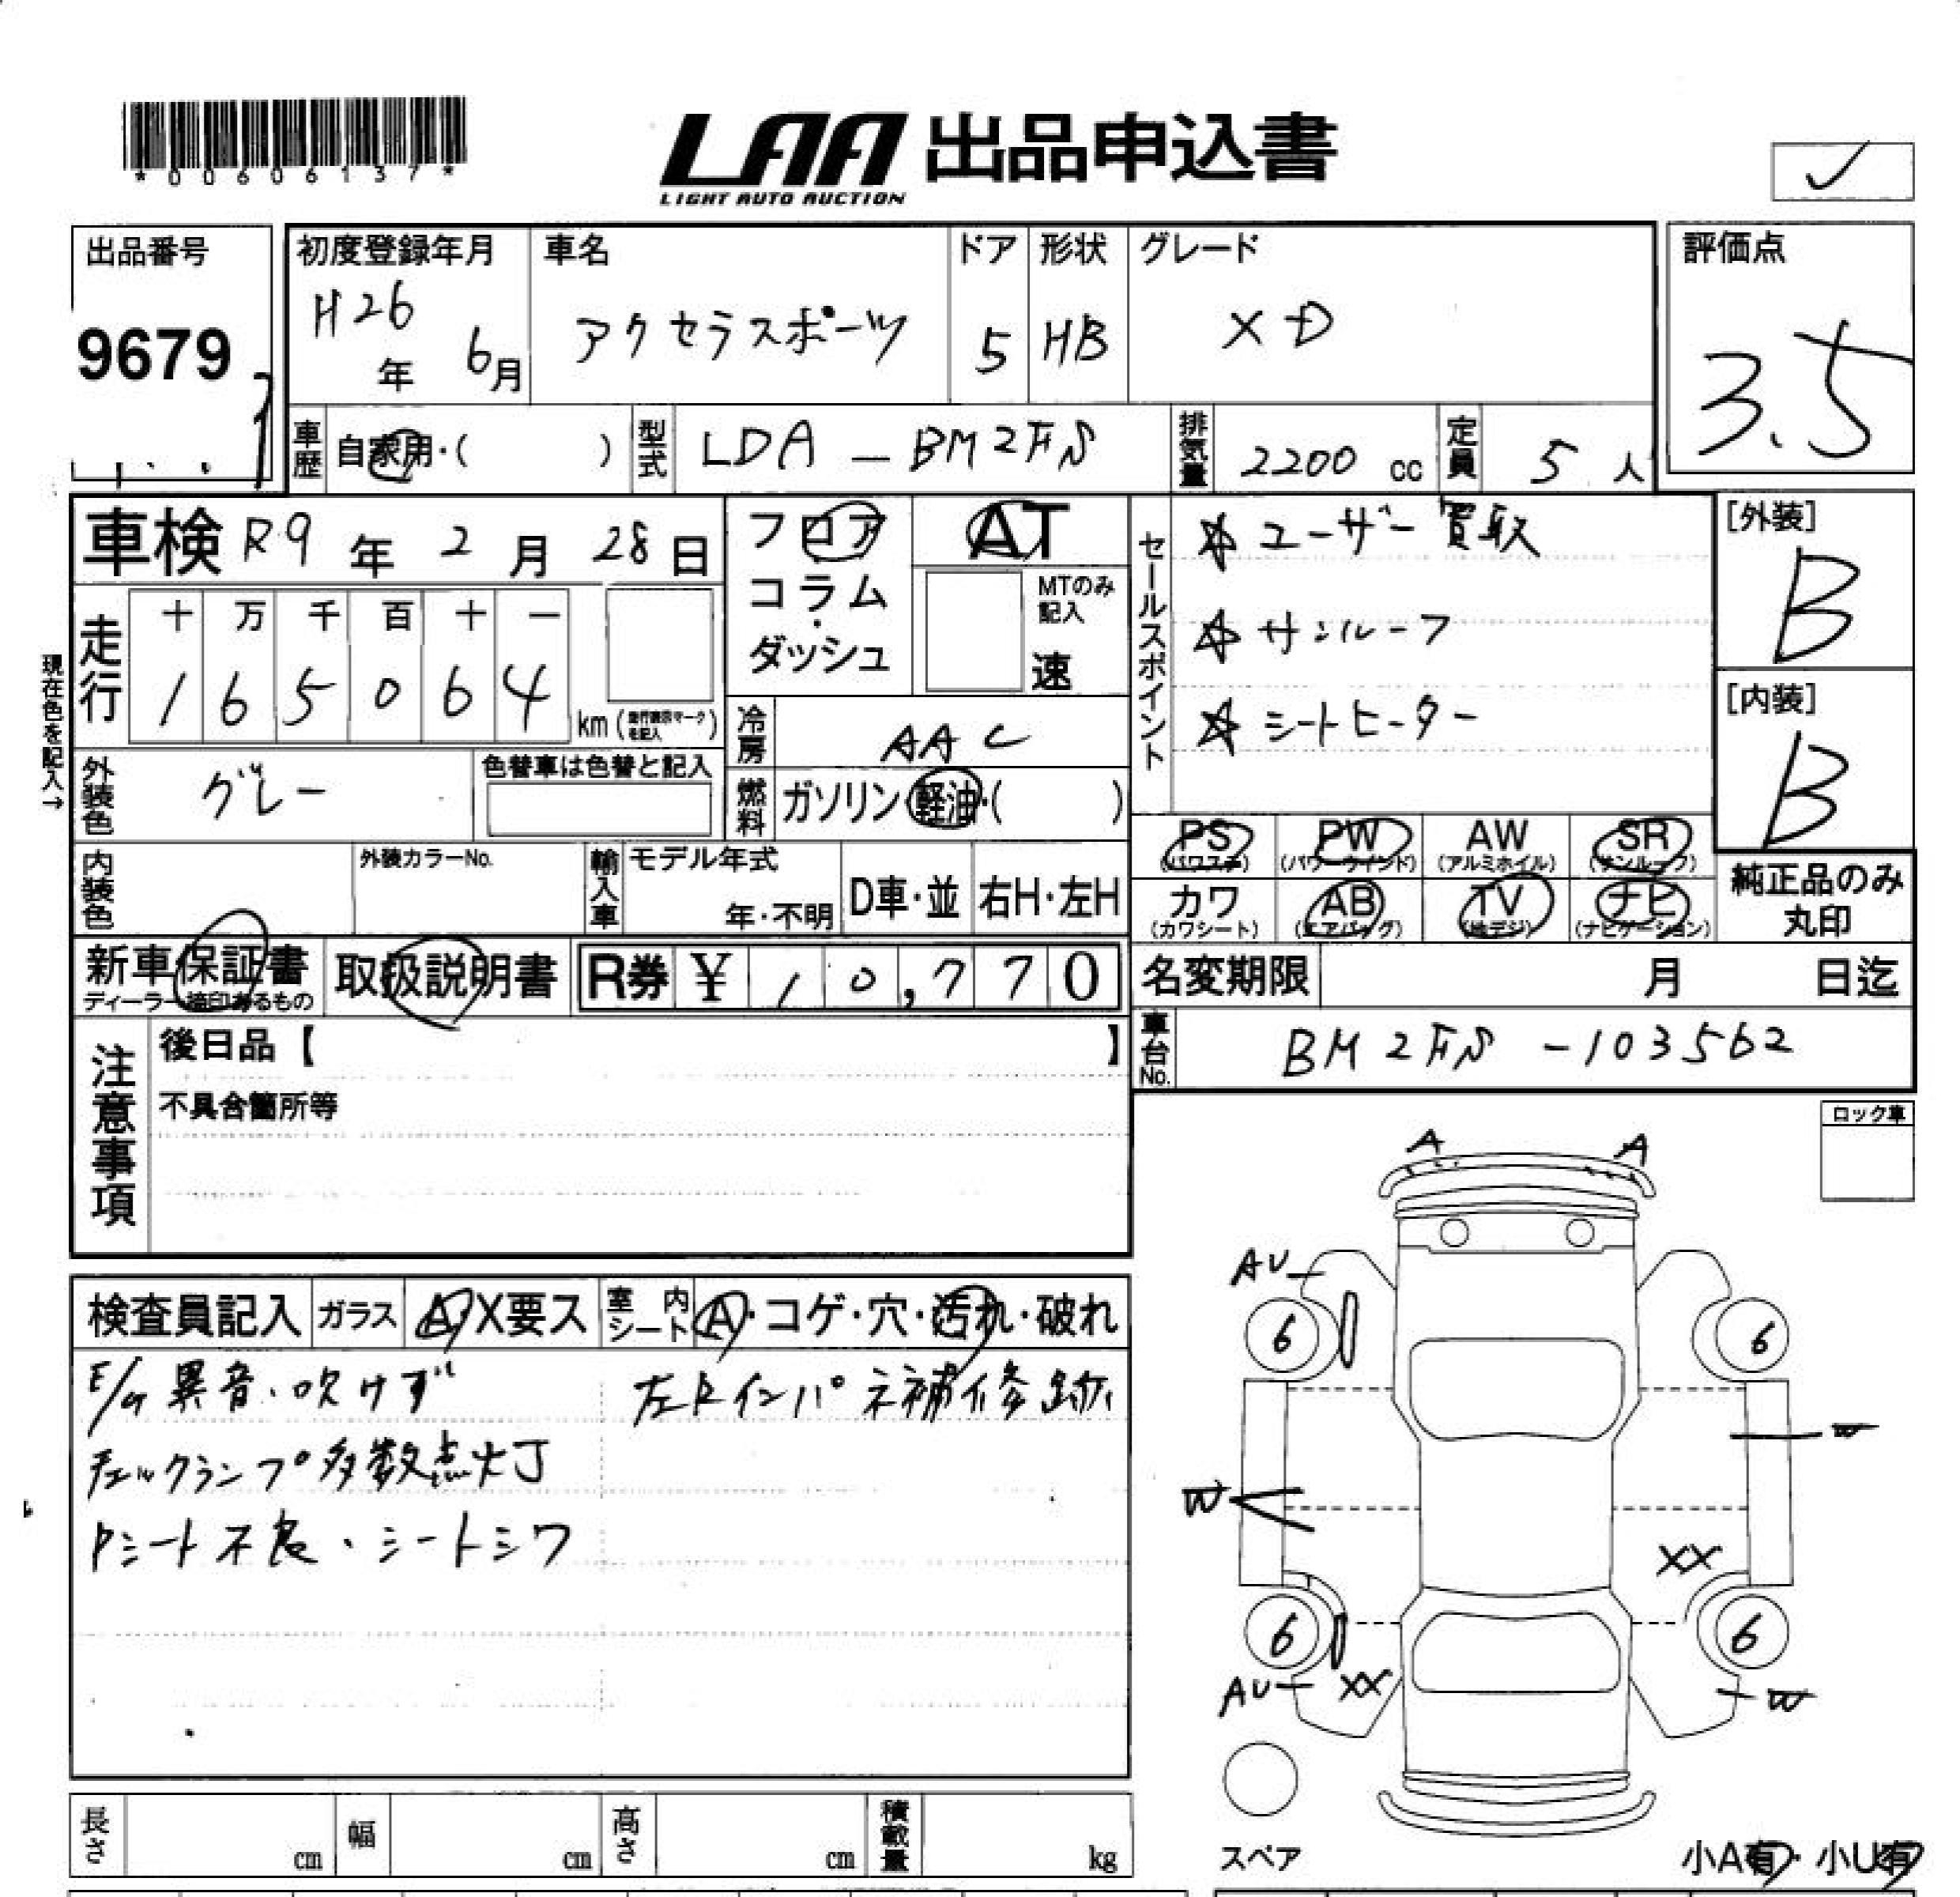 *00606137*
LAA 出品申込書
LIGHT AUTO AUCTION
✓
出品番号
9679
初度登録年月
H26年 6月
車名
アクセラスポーツ
ドア
5
形状
HB
グレード
XD
評価点
3.5
車歴
自家用・( )
型式
LDA-BM2FS
排気量
2200 cc
定員
5 人
車検 R9年 2月 28日
フロア
コラム・
ダッシュ
AT
MTのみ記入
速
セールスポイント
☆ ユーザー買取
☆ サンルーフ
☆ シートヒーター
[外装]
B
[内装]
B
現在色を記入→
走行
十 万 千 百 十 一
1 6 5 0 6 4
km (走行表示マークを記入)
冷房
AAC
外装色
グレー
色替車は色替と記入
燃料
ガソリン・軽油・( )
PS (パワステ)
PW (パワーウインド)
AW (アルミホイル)
SR (サンルーフ)
カワ (カワシート)
AB (エアバッグ)
TV (地デジ)
ナビ (ナビゲーション)
純正品のみ丸印
内装色
外装カラーNo.
輸入車
モデル年式
年・不明
D車・並
右H・左H
新車保証書
ディーラー捺印あるもの
取扱説明書
R券 ¥ 10,770
名変期限
月 日迄
車台No.
BM2FS-103562
注意事項
後日品【 】
不具合箇所等
ロック車
検査員記入
ガラス
A・X要ス
室内シート
A・コゲ・穴・汚れ・破れ
E/G 異音・吹けず
左Rインパネ補修跡
チェックランプ多数点灯
Pシート不良・シートシワ
A A
AU
6 6
W
W
XX
6 6
AU XX W
スペア
小A有・小U有
長さ cm
幅 cm
高さ cm
積載量 kg